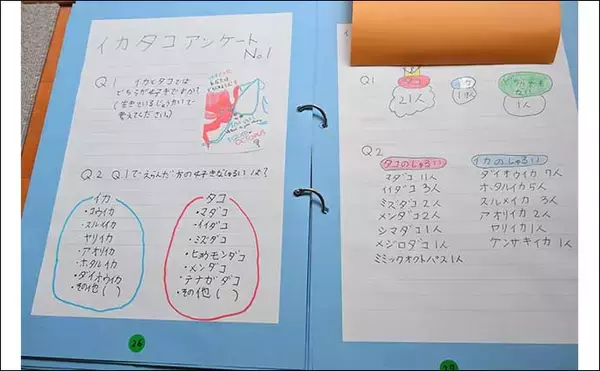 イカタコアンケート
No.1
Q1 イカとタコでは
どちらが好きですか?
(生きているじょうたいで
考えてください。)
Q2 Q1でえらんだ方の好きなしゅるいは?
イカ
・コウイカ
・スルメイカ
ヤリイカ
・アオリイカ
・ホタルイカ
・ダイオウイカ
・その他( )
タコ
・マダコ
・イイダコ
・ミズダコ
・ヒョウモンダコ
・メンダコ
・テナガダコ
・その他( )
26
Q1
タコ
21人
イカ
どちらでも
ない
1人
Q2
タコのしゅるい
マダコ 11人
イイダコ 3人
ミズダコ 2人
メンダコ 2人
シマダコ 1人
メジロダコ 1人
ミミックオクトパス 1人
イカのしゅるい
ダイオウイカ 7人
ホタルイカ 5人
スルメイカ 3人
アオリイカ 2人
ヤリイカ 1人
ケンサキイカ 1人